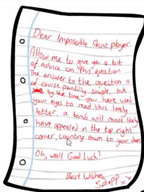 Dear Impossible Quiz player,
Allow me to give you a bit
of advice on this question.
The answer to the question is
of course painfully simple, but
by the time you have used
your eyes to read this lovely
letter, a bomb will most likely
have appeared in the top right
corner, counting down to your doom.
Oh, well! Good luck!
Best Wishes,